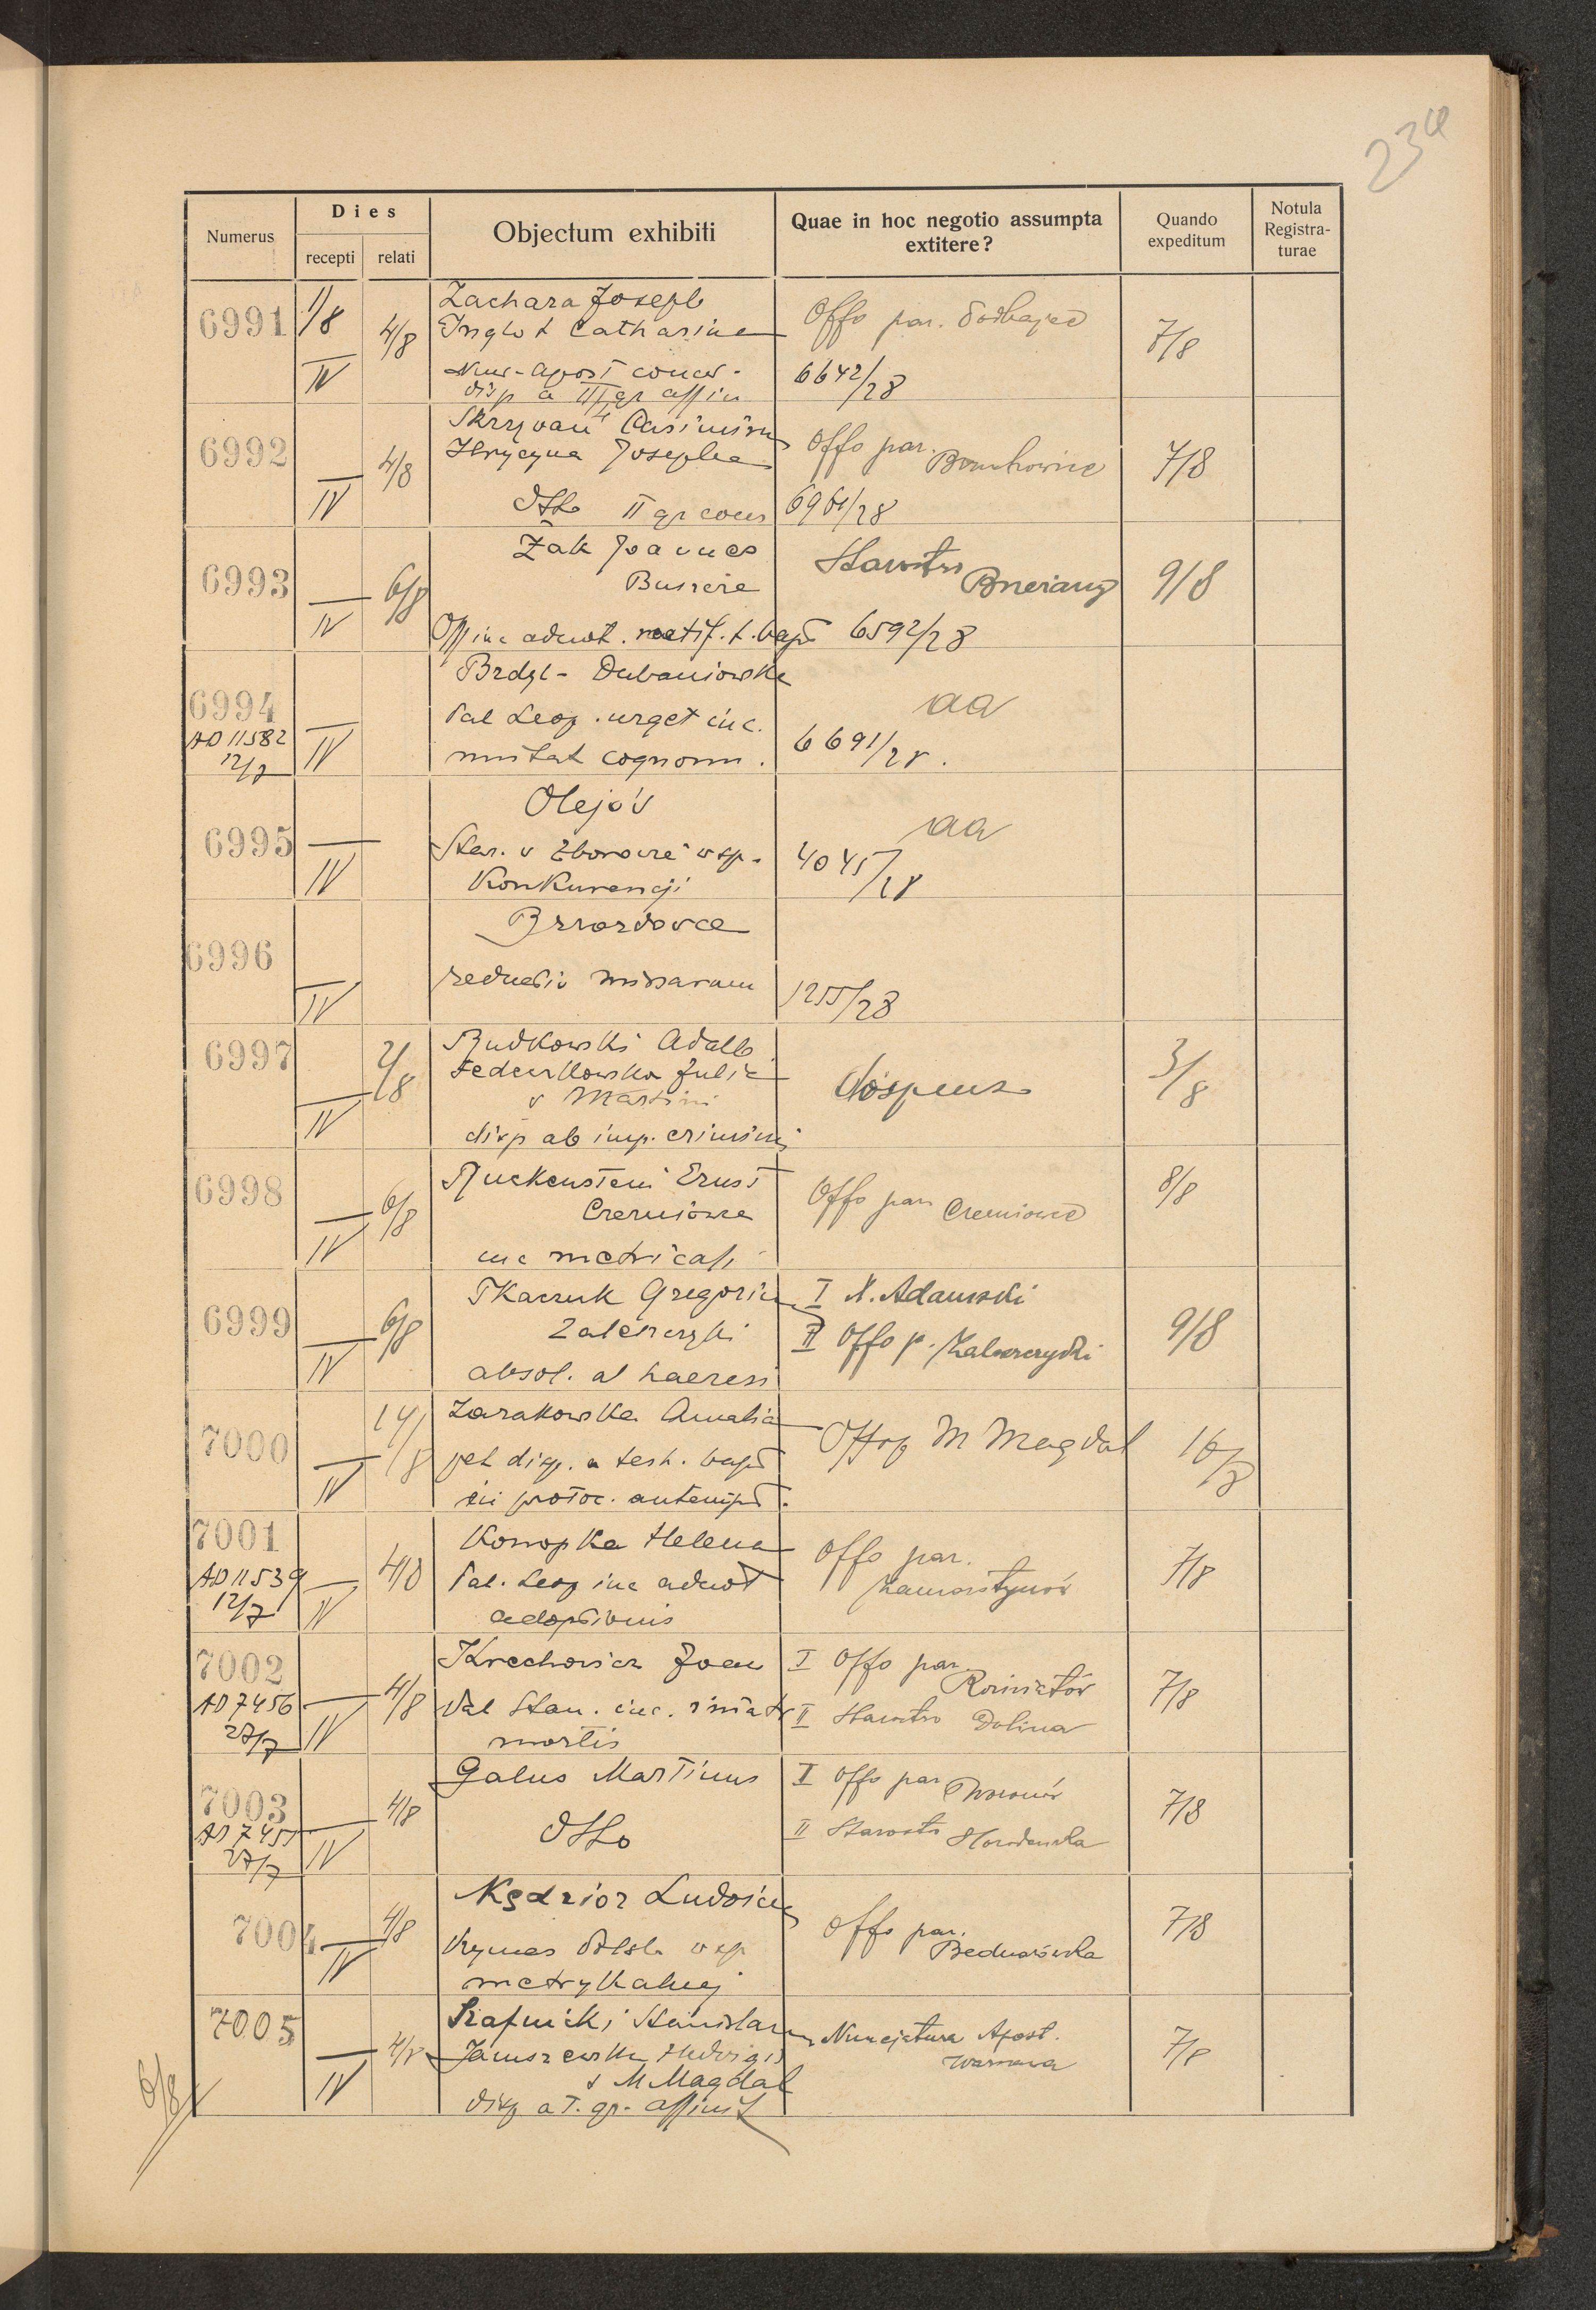 234
Numerus
Dies
recepti relati
Objectum exhibiti
Quae in hoc negotio assumpta extitere?
Quando expeditum
Notula Registra-turae
6991 1/8 IV 4/8
Zachara Joseph
Inglot Catharine
Nunc. apost concess.
disp a III gr affin
Offo par.
6642/28
7/8
6992 — IV 4/8
Casimirus
Hrycyna Josepha
dtto II gr cons
Offo par.
7/8
6993 — IV 6/8
Żak Joannes
Buszcze
Off inc adnot. rectif. t. bapt
Starostwo Brzeżany
6592/28
9/8
6994
AD 11582
12/7
— IV
Brdyl - Dubaniowska
Pal Leop. urget inc.
mutat cognom.
aa
6691/28.
6995 — IV
Olejów
Star. v Zborowie wsp.
Konkurencji
aa
4045/28
6996 — IV
Brzozdowce
reductio missarum
1255/28
6997 — IV 2/8
Rudkowski Adalb
Julia
v Martini
disp ab imp. criminis
dispens
3/8
6998 — IV 6/8
Ruckenstein Ernst
Czerniowce
inc metrical.
Offo par
8/8
6999 — IV 6/8
Tkaczuk Gregorius
Zaleszczyki
absol. ab haeresi
I X. Adamski
II Offo p. Zaleszczyki
9/8
7000 — IV 14/8
Zarakowska Amalia
pet disp. a test. bapt
in protoc. antenupt.
Offo p M Magdal
16/8
7001
AD 11539
12/7
— IV 4/8
Konopka Helena
Pal. Leop inc adnot
adoptionis
Offo par.
Zamarstynów
7/8
7002
AD 7456
27/7
— IV 4/8
Krechowicz Joan
Pal Stan. inc.
mortis
I Offo par. Rożniatów
II Starostwo Dolina
7/8
7003
AD 7455
27/7
— IV 4/8
Galus Martinus
dtto
I Offo par
II Starostwo Horodenka
7/8
7004 — IV 4/8
Kędzior Ludovicus
wsp
metrykalnej
Offo par.
Bednarówka
7/8
7005 — IV 4/8
Szafnicki Stanislaus
Januszewska Hedvigis
v M Magdal
disp a I. gr. affinit
Nuncjatura Apost.
Warszawa
7/8
6/8